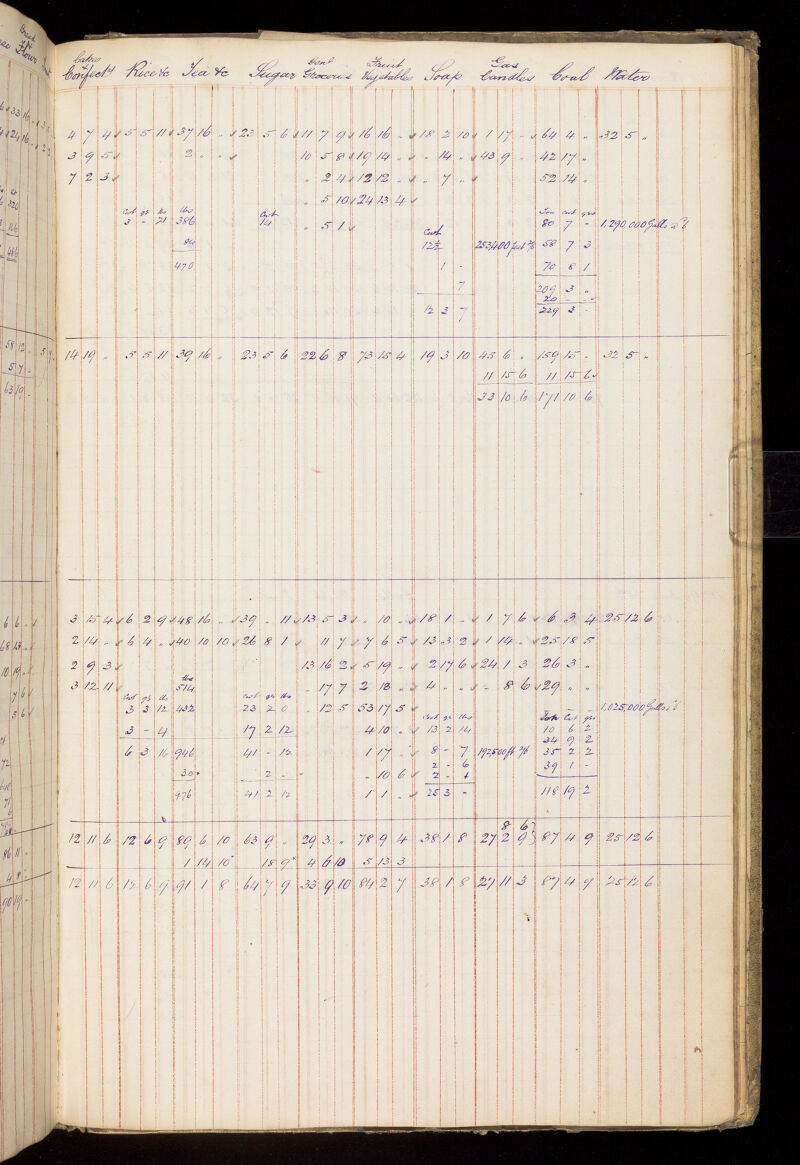 Cakes Genl Fruit Gas
Confecty Rice &c Tea &c Sugar Groceries Vegetables Soap Candles Coal Water
4 7 4 5 5 11 37 16 - 23 5 6 11 7 9 16 16 - 18 2 10 1 17 - 64 4 " 32 5 "
3 9 5 2 - - 10 5 8 19 14 - - 14 - 43 9 " 42 17 "
7 2 3 " 2 4 12 12 - " 7 " 52 14 "
" 5 10 24 13 4
Cwt qr lbs lbs Cwt Ton cwt qrs
3 - 21 386 14 " 5 1 80 7 - 1,290,000 Galls
Cwt
84 12½ 253,400 feet 58 7 3
470 1 - 70 8 1
7 209 3 "
20 - -
12 3 7 229 3 -
14 19 " 5 5 11 39 16 " 23 5 6 22 6 8 73 15 4 19 3 10 45 6 " 159 15 " 32 5 "
11 15 6 11 15 6
33 10 6 171 10 6
3 15 4 6 2 9 48 16 - 39 - 11 13 5 3 - 10 - 18 1 - 1 7 6 6 3 4 25 12 6
2 14 - 6 4 - 40 10 10 26 8 1 11 7 7 6 5 13 3 2 1 14 - 25 18 5
2 9 3 13 16 2 5 19 - 2 17 6 24 1 3 26 3 "
lbs
3 12 11 514 - 17 7 2 13 - 4 - - - 8 6 29 " "
Cwt qr lbs cwt qr lbs
3 3 12 432 23 2 0 " 12 5 53 17 5 1,025,000 Galls
Cwt qr lbs Ton Cwt qrs
3 - 4 17 2 12 4 10 - 13 2 14 10 6 2
34 9 2
6 3 16 946 41 - 12 1 17 - 8 - 7 192500 ft 35 2 2
2 - 6 39 1 -
30 2 - - - 10 6 2 - 1
976 41 2 12 1 1 - 25 3 - 118 19 2
8 6
12 11 6 12 6 9 89 6 10 63 9 " 29 3 " 78 9 4 38 1 8 27 2 9 87 4 9 25 12 6
1 14 10 18 9 4 6 10 5 13 3
12 11 6 12 6 9 91 1 8 64 7 9 33 9 10 84 2 7 38 1 8 27 11 3 87 4 9 25 12 6